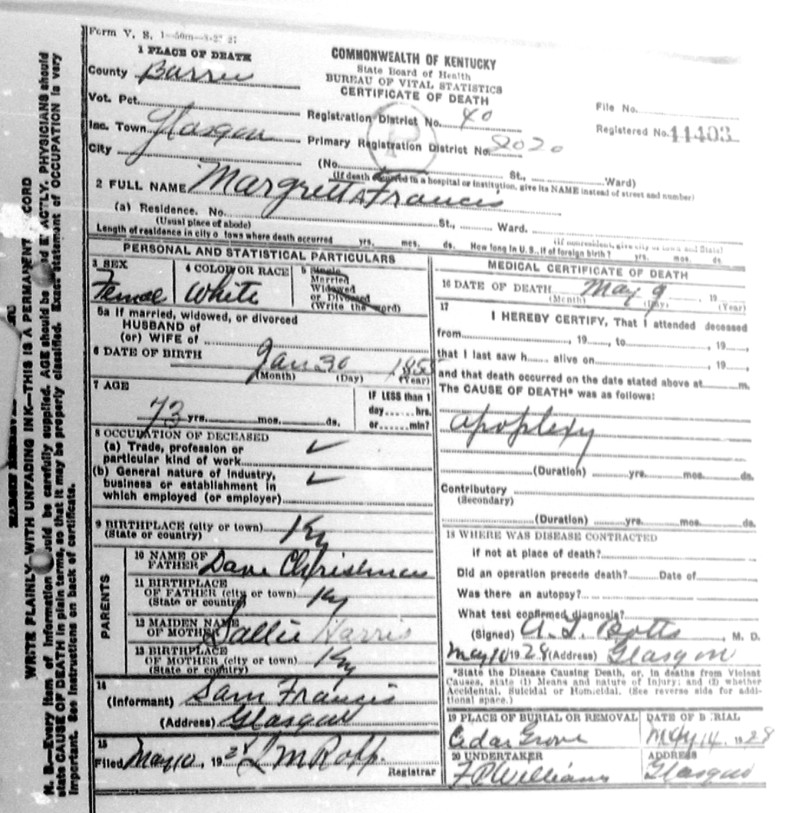 Form V. S. 1-50m-
1 PLACE OF DEATH
County Barren
Vot. Pct.
Inc. Town Glasgow
City
COMMONWEALTH OF KENTUCKY
State Board of Health
BUREAU OF VITAL STATISTICS
CERTIFICATE OF DEATH
Registration District No. 40
Primary Registration District No.
File No.
Registered No. 11403
(No. St., Ward)
(If death occurred in a hospital or institution, give its NAME instead of street and number)
2 FULL NAME Margrett Francis
(a) Residence. No. St., Ward.
(Usual place of abode) (If nonresident, give city or town and State)
Length of residence in city o town where death occurred yrs. mos. ds. How long in U. S., if of foreign birth? yrs. mos. ds.
PERSONAL AND STATISTICAL PARTICULARS
3 SEX
Female
4 COLOR OR RACE
White
5 Single
Married
Widowed
or Divorced
(Write the word)
5a If married, widowed, or divorced
HUSBAND of
(or) WIFE of
6 DATE OF BIRTH
Jan 30 1855
(Month) (Day) (Year)
7 AGE
73 yrs. mos. ds.
IF LESS than 1
day hrs.
or min?
8 OCCUPATION OF DECEASED
(a) Trade, profession or
particular kind of work
(b) General nature of industry,
business or establishment in
which employed (or employer)
9 BIRTHPLACE (city or town)
(State or country) Ky
PARENTS
10 NAME OF
FATHER Dave
11 BIRTHPLACE
OF FATHER (city or town)
(State or country) Ky
12 MAIDEN NAME
OF MOTHER Sallie Harris
13 BIRTHPLACE
OF MOTHER (city or town)
(State or country) Ky
14
(Informant) Sam Francis
(Address) Glasgow
15
Filed May 10, 1928
Registrar
MEDICAL CERTIFICATE OF DEATH
16 DATE OF DEATH May 9, 19
(Month) (Day) (Year)
17
I HEREBY CERTIFY, That I attended deceased
from, 19, to, 19,
that I last saw h alive on, 19,
and that death occurred on the date stated above at m.
The CAUSE OF DEATH* was as follows:
apoplexy
(Duration) yrs. mos. ds.
Contributory
(Secondary)
(Duration) yrs. mos. ds.
18 WHERE WAS DISEASE CONTRACTED
if not at place of death?
Did an operation precede death? Date of
Was there an autopsy?
What test confirmed diagnosis?
(Signed) Botts, M. D.
May 10 1928 (Address) Glasgow
*State the Disease Causing Death, or, in deaths from Violent
Causes, state (1) Means and nature of Injury; and (2) whether
Accidental, Suicidal or Homicidal. (See reverse side for addi-
tional space.)
19 PLACE OF BURIAL OR REMOVAL
Cedar Grove
DATE OF B RIAL
May 14, 1928
20 UNDERTAKER
Williams
ADDRESS
Glasgow
WRITE PLAINLY WITH UNFADING INK—THIS IS A PERMANENT CORD
N. B.—Every item of information should be carefully supplied. AGE should be d E ACTLY. PHYSICIANS should
state CAUSE OF DEATH in plain terms, so that it may be properly classified. Exact statement of OCCUPATION is very
important. See instructions on back of certificate.